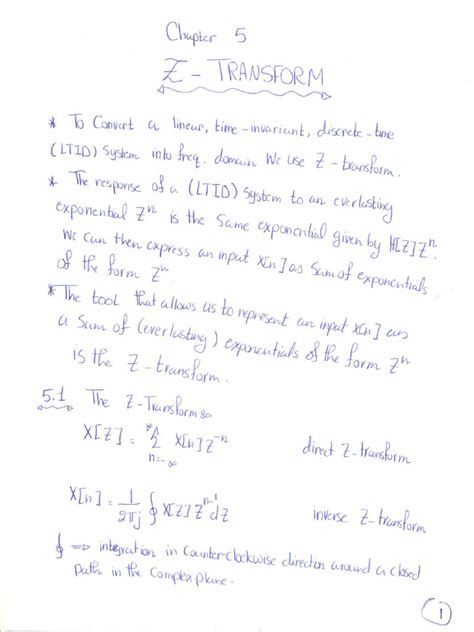 Chapter 5
Z - TRANSFORM
* To Convert a linear, time-invariant, discrete-time
(LTID) System into freq. domain we use Z-transform.
* The response of a (LTID) System to an everlasting
exponential Zⁿ is the same exponential given by H[Z]Zⁿ.
We can then express an input X[n] as sum of exponentials
of the form Zⁿ.
* The tool that allows us to represent an input X[n] as
a sum of (everlasting) exponentials of the form Zⁿ
is the Z-transform.
5.1 The Z-Transform:
X[Z] = ∑_{n=-∞}^{∞} X[n] Z⁻ⁿ direct Z-transform
X[n] = 1/2πj ∮ X[Z] Zⁿ⁻¹ dZ inverse Z-transform
∮ ⇒ integration in Counter-clockwise direction around a closed
path in the Complex plane.
1